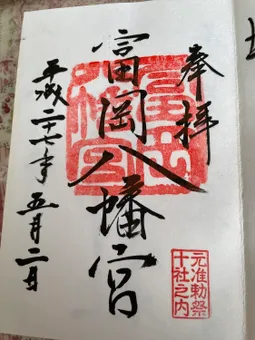 奉拝
富岡八幡宮
平成二十七年五月二日
元准勅祭
十社之内